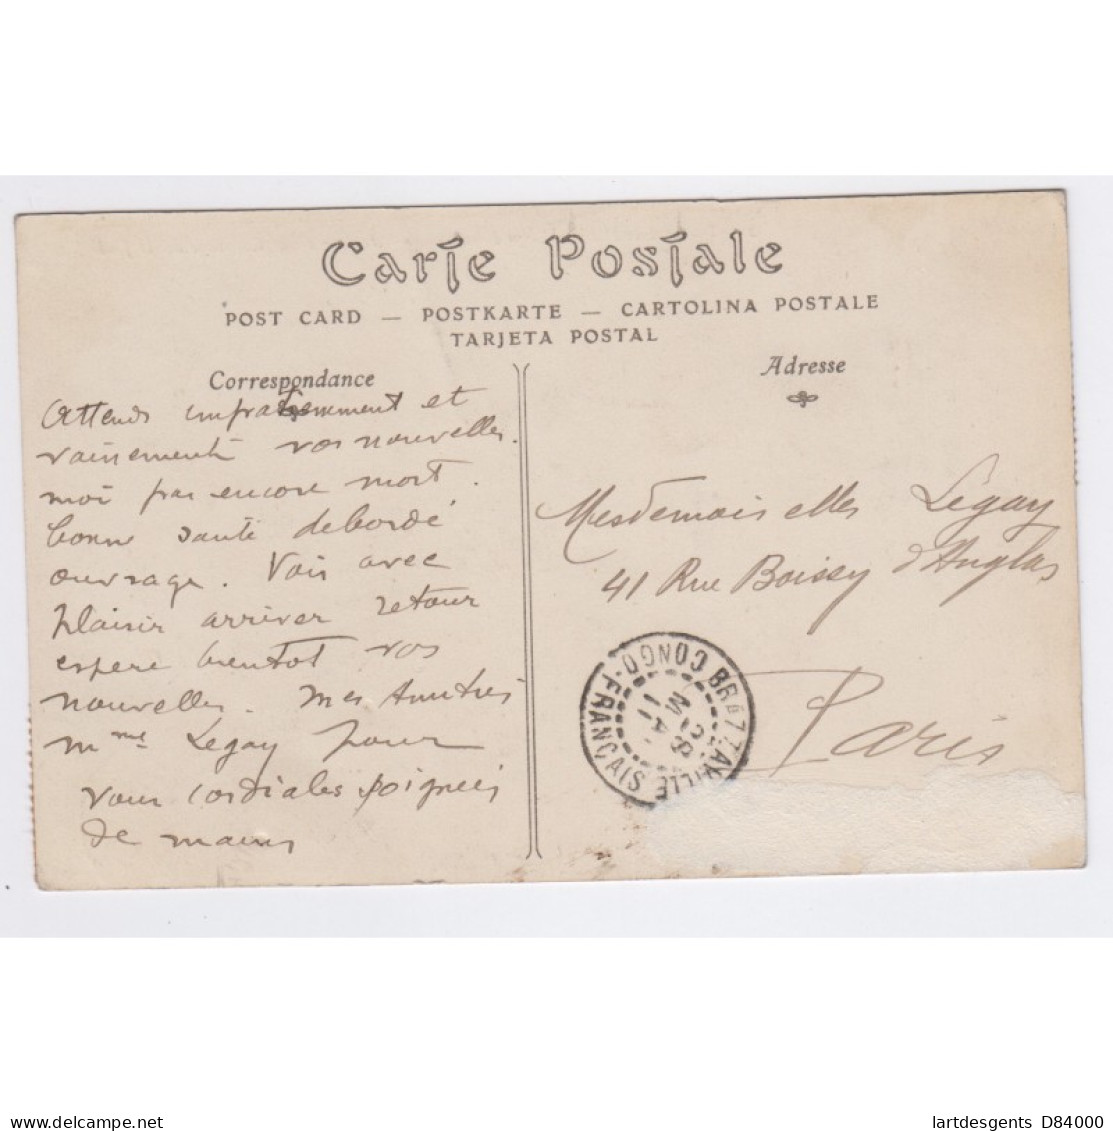 Carte Postale
POST CARD — POSTKARTE — CARTOLINA POSTALE
TARJETA POSTAL
Correspondance
Attends impatiemment et
vainement vos nouvelles.
moi pas encore mort.
bonne santé debordé
ouvrage. Vois avec
plaisir arriver retour
espere bientot vos
nouvelles. mes
Mme Legay pour
vous cordiales poignées
de mains
Adresse
Mesdemoiselles Légay
41 Rue Boissy d'Anglas
Paris
BRAZZAVILLE
CONGO-FRANÇAIS
28
MA
11
lartdesgents D84000